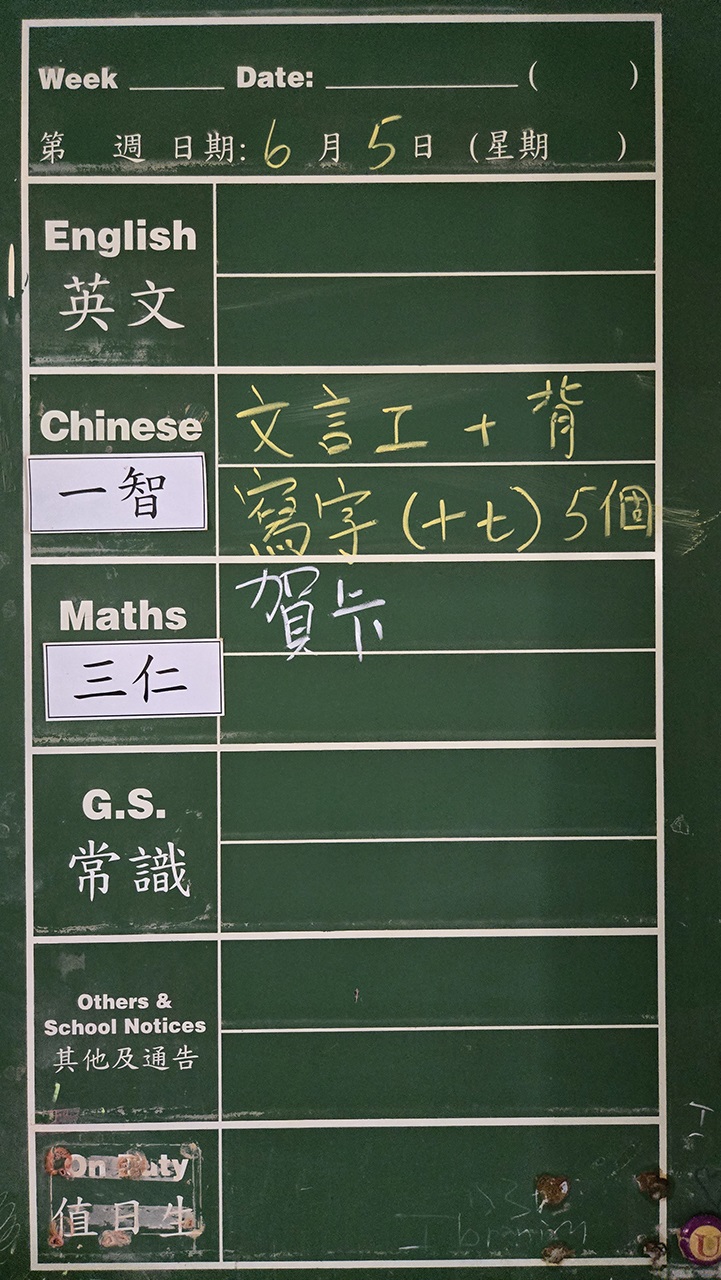 Week ______ Date: ____________ ( )
第 週 日期: 6 月 5 日 (星期 )
English
英文
文言工 + 背
Chinese
一智
寫字 (十七) 5個
賀卡
Maths
三仁
G.S.
常識
Others &
School Notices
其他及通告
On Duty
值日生
U